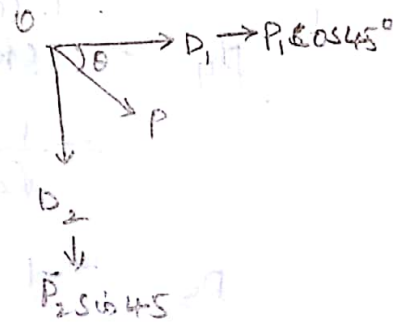 O
θ
D₁ → P₁ cos45°
P
D₂
↓
P₂ sin 45